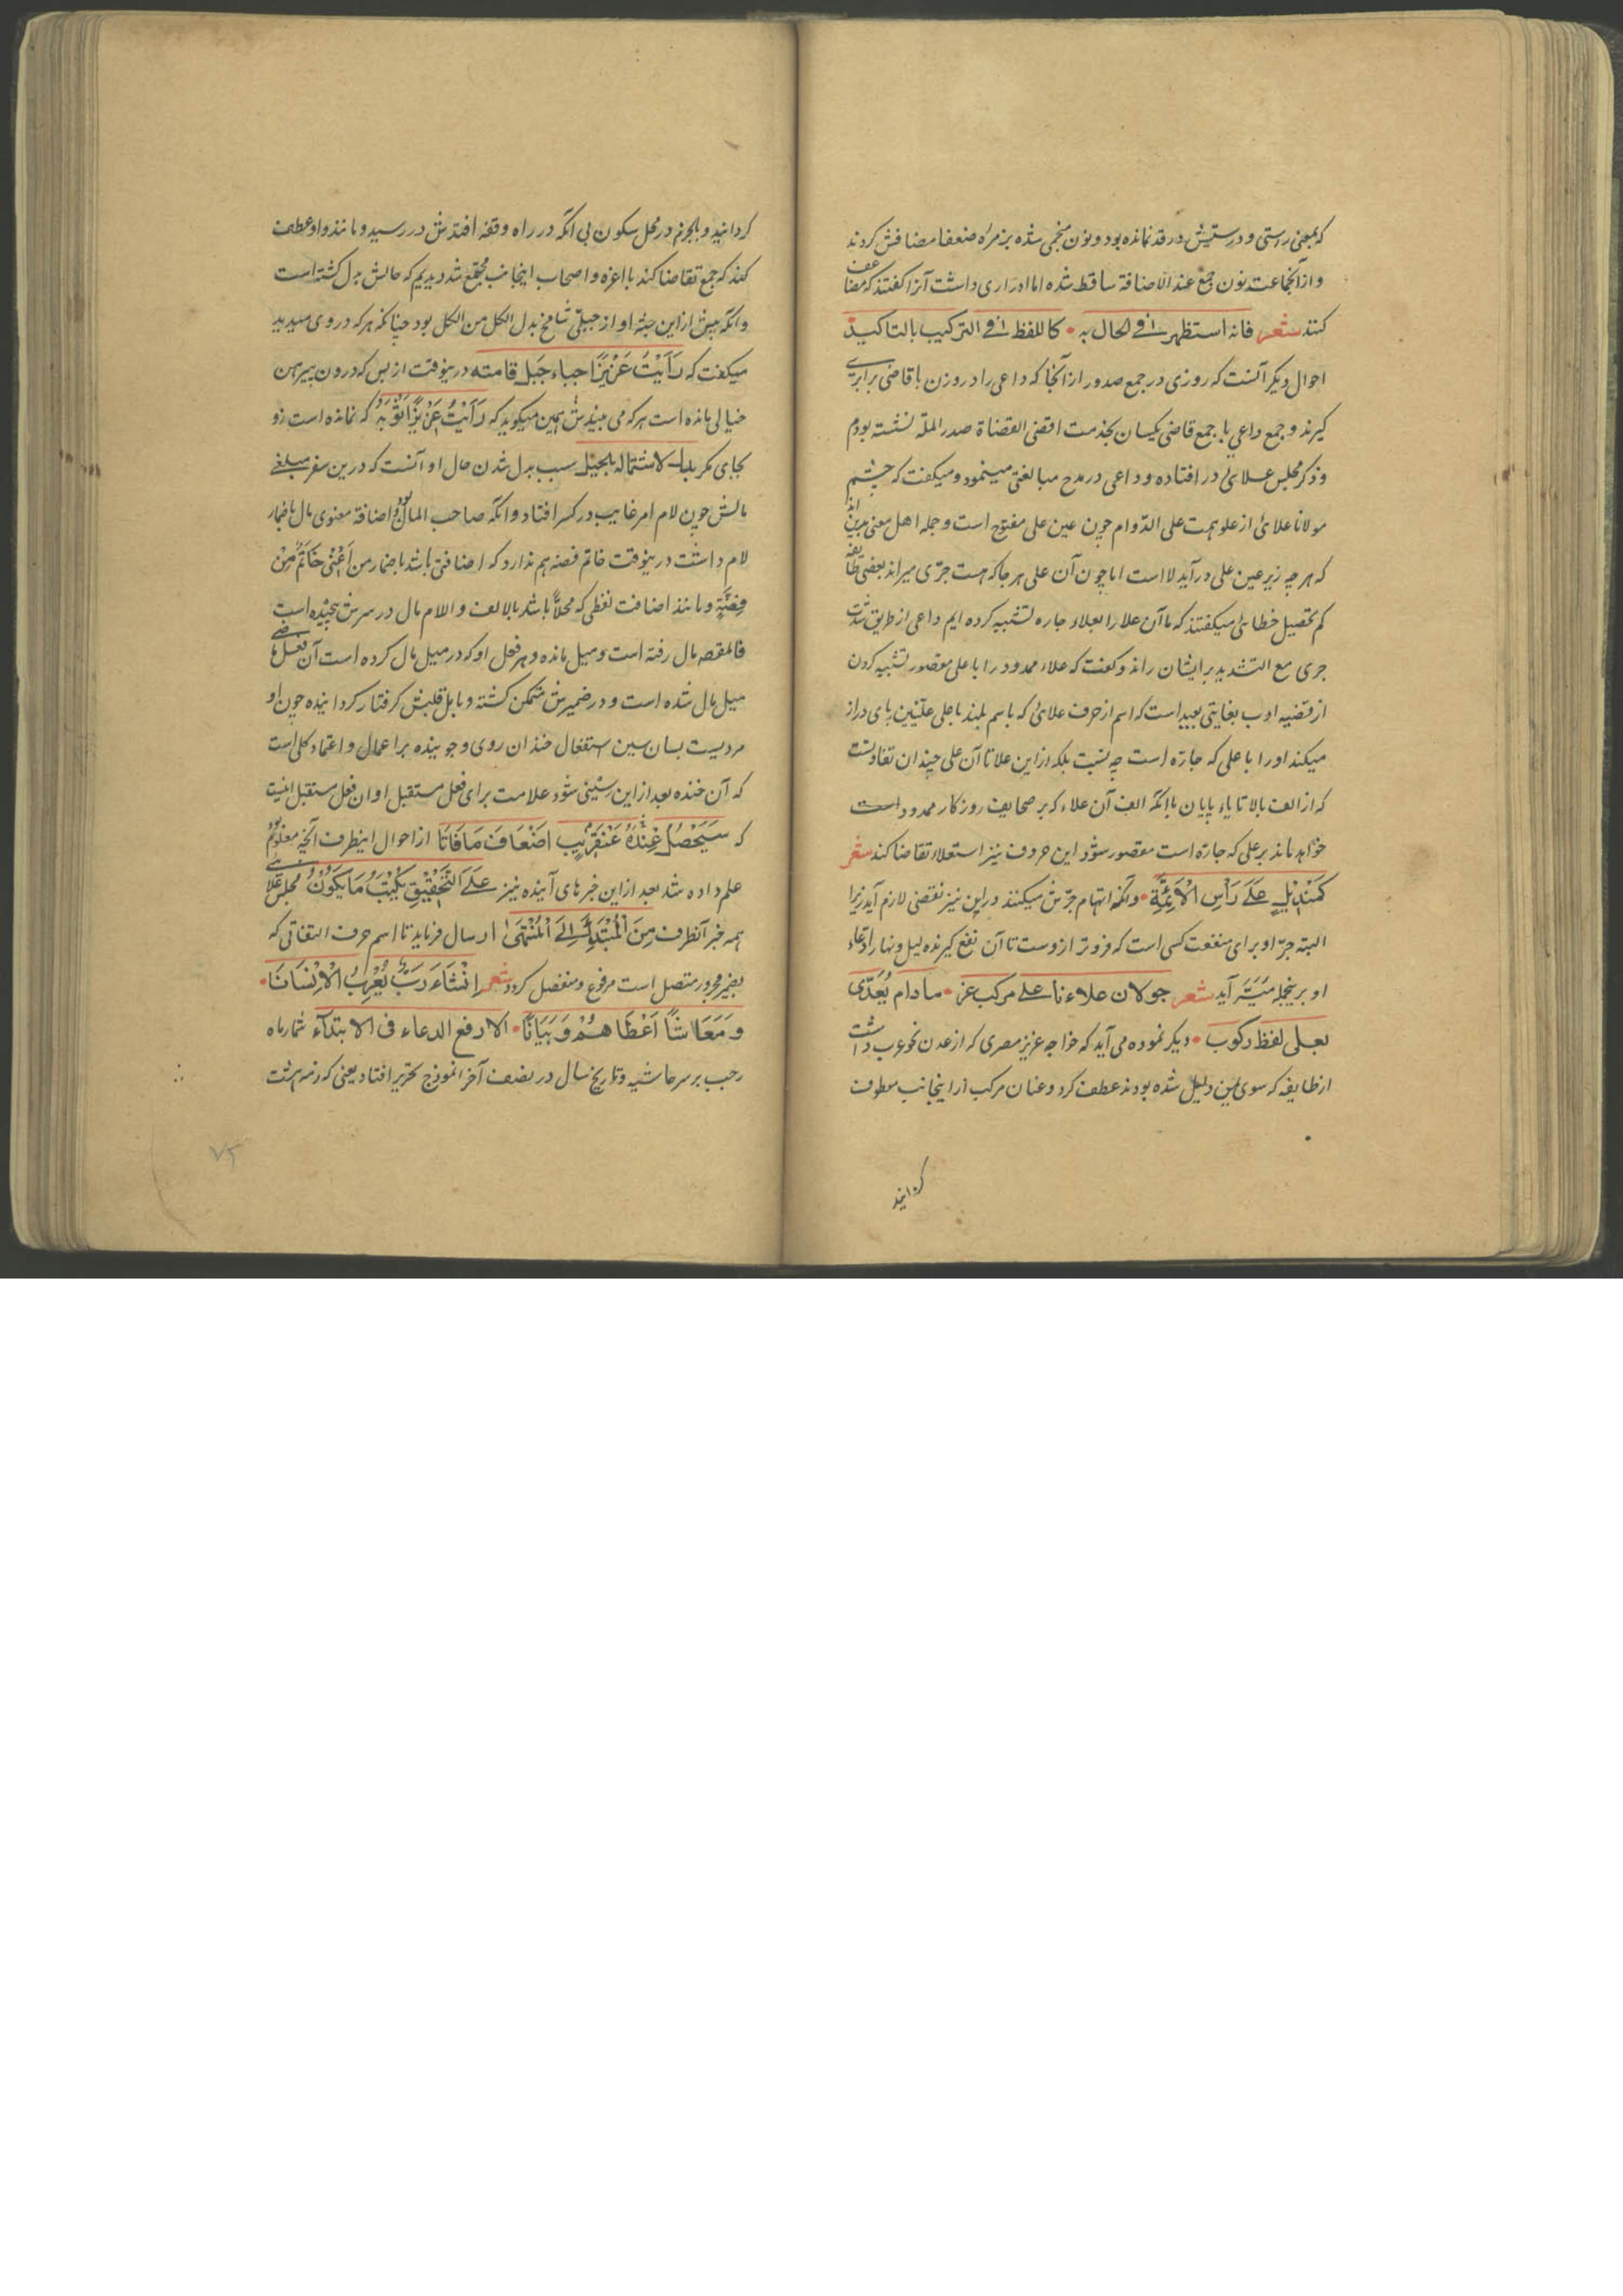 که بمعنی راستی و درستیش در قد نمانده بود و نون منحنی شده بزمرۀ ضعفا مضافش کردند
و از آنجماعت نون جمع عند الاضافة ساقط شده اما ادراری داشت آنرا گفتند که مضاعف
کنند شعر فانه استظهر فی الحال به • کاللفظ فی الترکیب بالتاکید
احوال دیگر آنست که روزی در جمع صدور از آنجا که داعی را در وزن با قاضی برابری
گیرند و جمع داعی با جمع قاضی یکسان بخدمت اقضی القضاة صدر الملة نشسته بودم
و ذکر مجلس علائی در افتاده و داعی در مدح مبالغتی مینمود و میگفت که چشم
مولانا علائی از علو همت علی الدوام چون عین علی مفتوح است و جمله اهل معنی برین اند
که هر چه زیر عین علی در آید لا است اما چون آن علی هر جا که هست جرّی میراند بعضی طایفه
کم تحصیل خطائی میگفتند که ما آن علا را بعلاء جاره تشبیه کرده ایم داعی از طریق شدت
جری مع التشدید بر ایشان راند و گفت که علاء ممدود را با علی مقصور تشبیه کردن
از قضیه ادب بغایتی بعید است که اسم از حرف علائی که باسم بلند با علی علیین پای دراز
میکند او را با علی که جاره است چه نسبت بلکه از این علا تا آن علی چندان تفاوتست
که از الف بالا تا یاء پایان با آنکه الف آن علاء که بر صحایف روزگار ممدود است
خواهد ماند بر علی که جاره است مقصور شود این حروف نیز استعلاء تقاضا کند شعر
کمندیل علی رأس الائمة • و آنکه اتهام جرّش میکنند در این نیز نقضی لازم آید زیرا
البته جرّ او برای منفعت کسی است که فروتر از وست تا آن نفع گیرنده لیل و نهار ادعاء
او برینجمله میسّر آید شعر جولان علاءنا علی مرکب عز • مادام یُعدّی
بعلی لفظ رکوب • دیگر نموده می آید که خواجه عزیز مصری که از عدن نحو عرب داشت
از طایفه که سوی یمن دلیل شده بودند عطف کرد و عنان مرکب از اینجانب معطوف
گردانید
گردانید و بالجزم در محل سکون بی آنکه در راه وقفه افتدش در رسید و مانند واو عطف
کند که جمع تقاضا کند با اعزه و اصحاب اینجانب مجتمع شد دیدیم که حالش بدل گشته است
و آنکه پیش از این جثه او از جبلی شامخ بدل الکل من الکل بود چنانکه هر که در وی میدید
میگفت که رَأَیْتُ عَزِیْزًا جباء جَبَل قامته درینوقت از بس که درون پیرهن
خیالی مانده است هر که می بیندش همین میگوید که رَأَیْتُ عَزِیْزًا ثَوْبَه که نمانده است زو
بجای مگر بدل الاشتماله بالحیل سبب بدل شدن حال او آنست که درین سفر مبلغی
مالش چون لام امر غایب در کسر افتاد و آنکه صاحب المال بود و اضافة معنوی مال باضمار
لام داشت درینوقت خاتم فضه هم ندارد که اضافتی باشد باضمار من اَعْنی خَاتَمٌ مِنْ
فِضَّةٍ و مانند اضافت لفظی که محلاً باشد بالالف و اللام مال در سرش پیچیده است
فالمقصه مال رفته است و میل مانده و هر فعل او که در میل مال کرده است آن فعلها ضی
میل مال شده است و در ضمیرش متمکن گشته و بابل قلبش گرفتار گردانیده چون او
مردیست بسان سین استفعال خندان روی و جوینده بر اعمال و اعتماد کلی است
که آن خنده بعد از این سینی شود علامت برای فعل مستقبل او ان فعل مستقبل اینست
که سَیَحْصُلُ عِنْدَهُ عَنْقَرِیْبٍ اضْعَافَ مَا فَاتَا از احوال اینطرف آنچه معلوم بود
علم داده شد بعد از این خبرهای آینده نیز عَلَی التَّحْقِیْقِ یَکْتُبُ مَا یَکُوْنُ مجلس علائی
همه خبر آنطرف مِنَ الْمُبْتَدَأِ اِلَی الْمُنْتَهَی ارسال فرماید تا اسم حرف التفاتی که
بضمیر مجرور متصل است مرفوع و منفصل گردد شعر اِنْشَاءَ رَبٌّ یُعْرِبُ الْاِنْسَانَا •
وَمَعَاشًا اَعْطَاهُمْ وَبَیَانًا • الا رفع الدعاء فی الابتداء شمار ماه
رجب بر سر حاشیه و تاریخ سال در نصف آخر انموذج تحریر افتاد یعنی که دمه هشت
۷۲